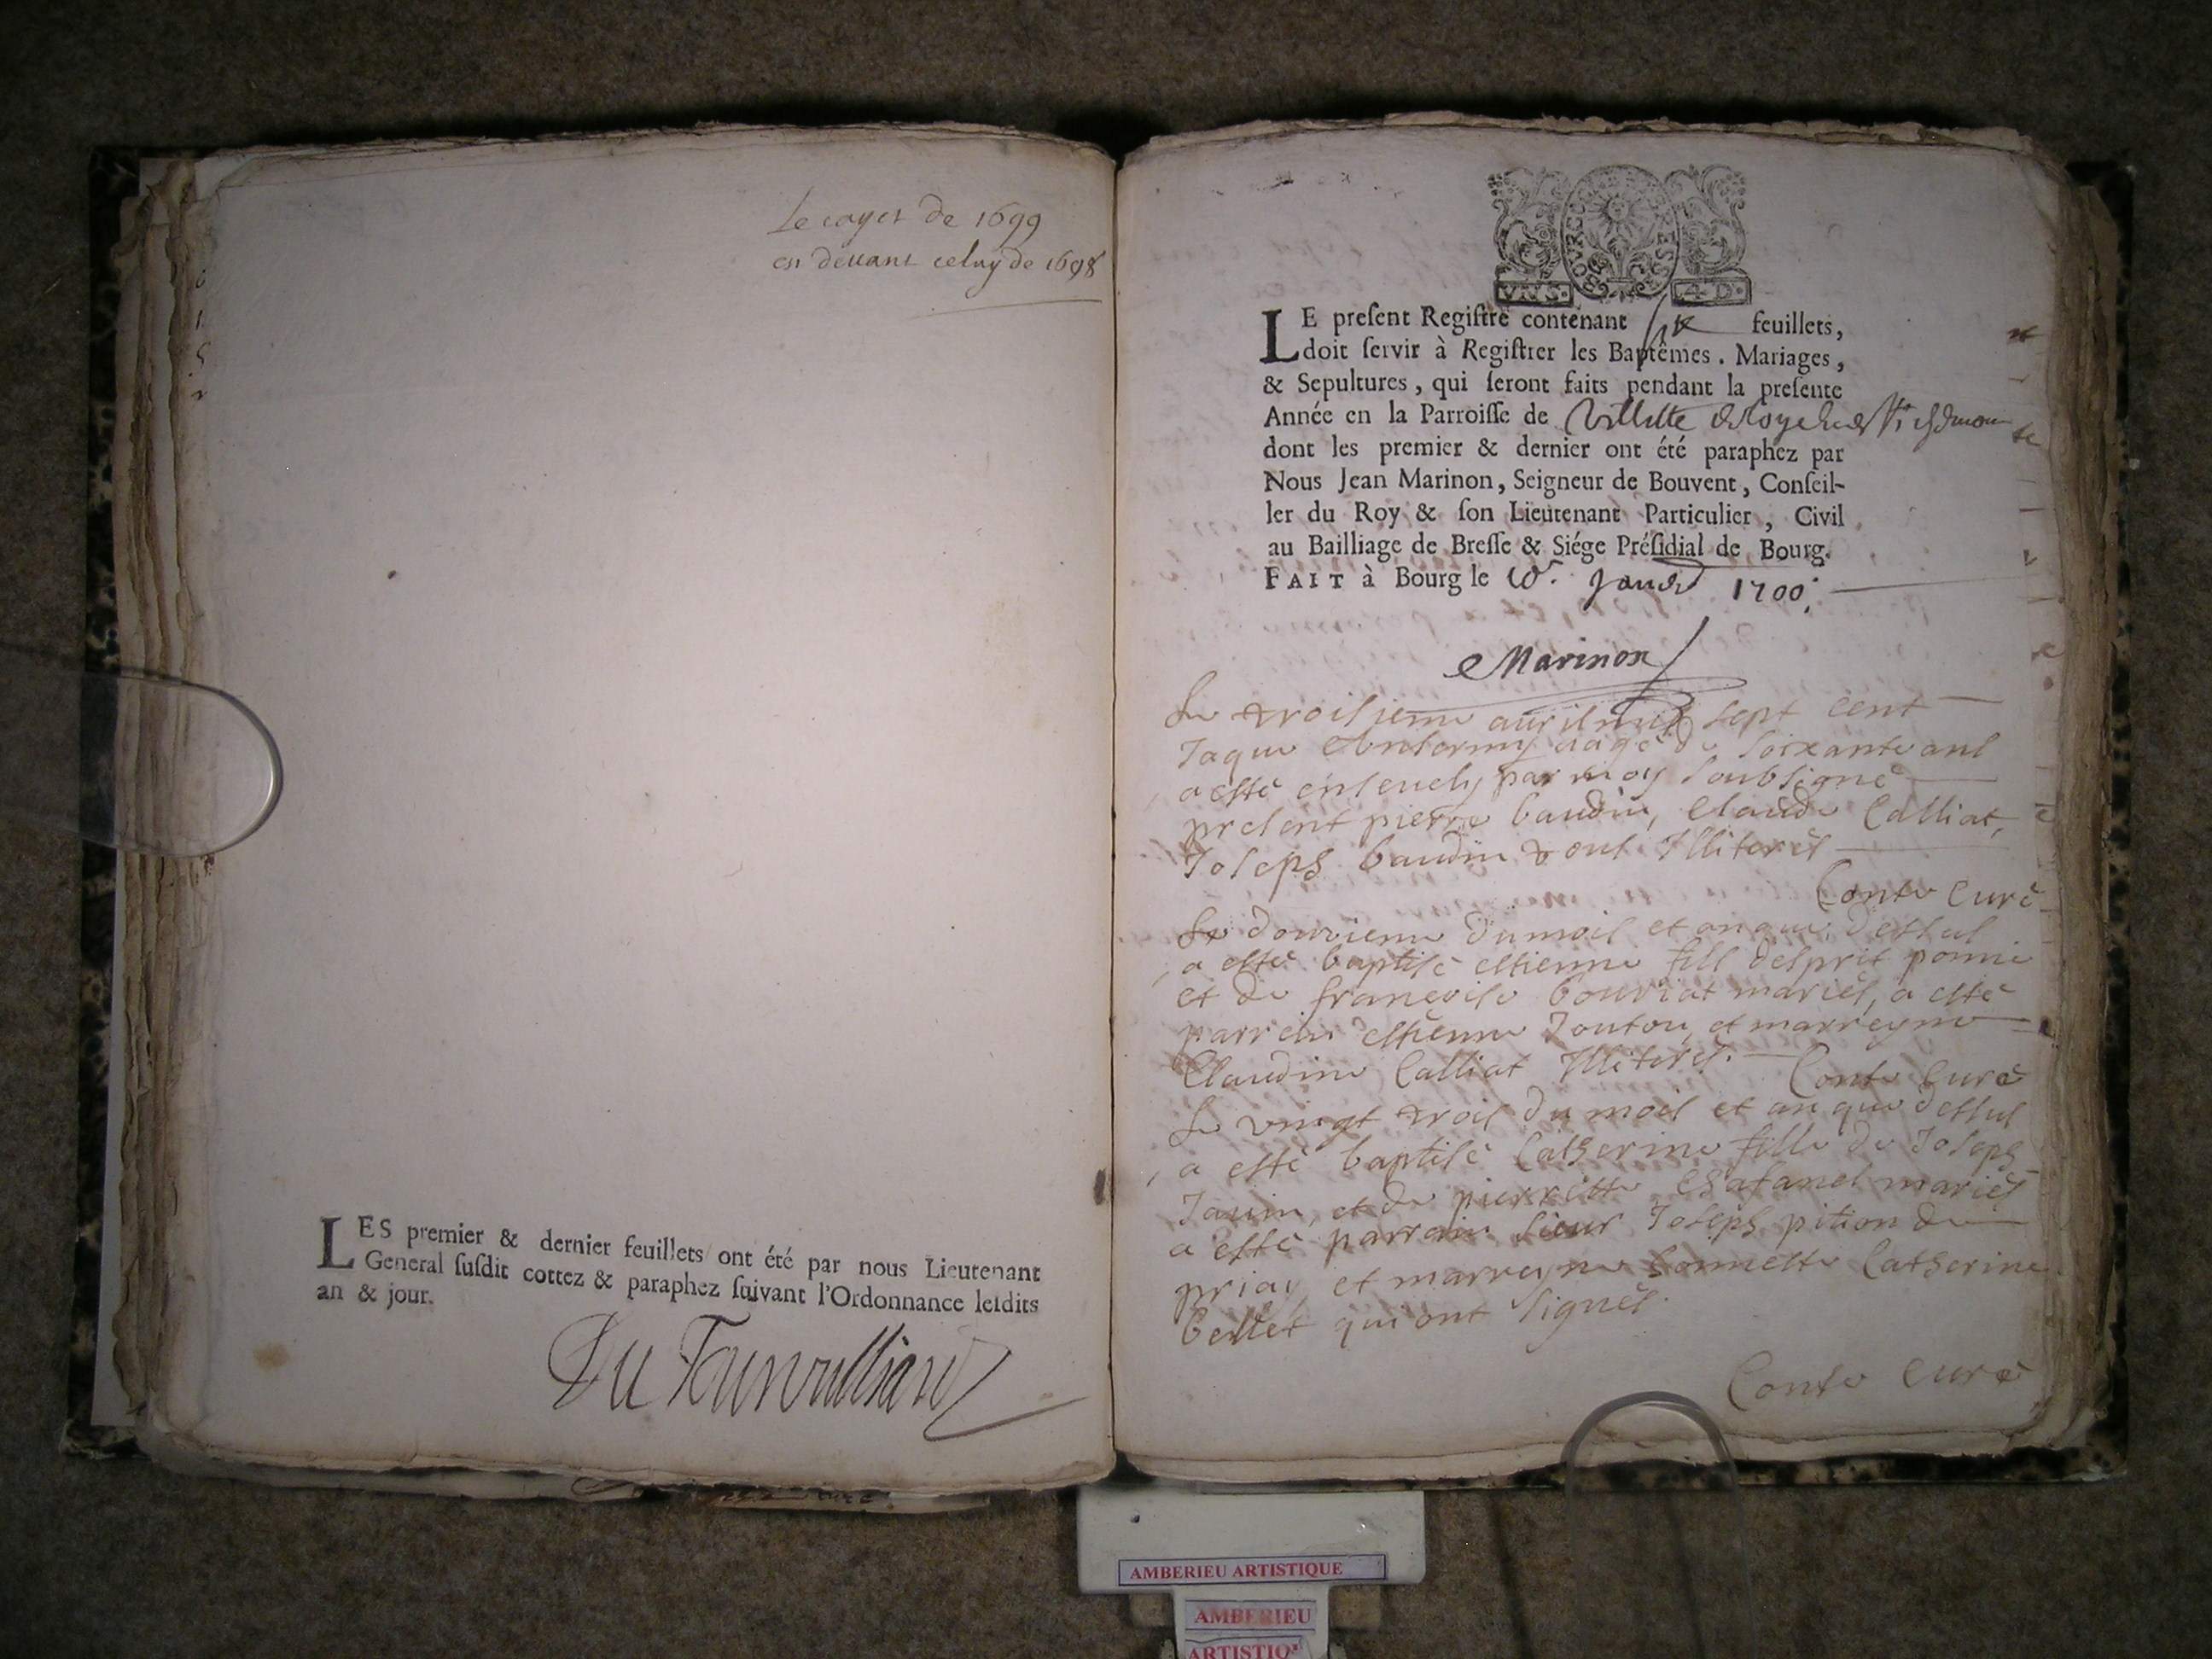 Le cayer de 1699
en devant celuy de 1698
LES premier & dernier feuillets ont été par nous Lieutenant
General susdit cottez & paraphez suivant l'Ordonnance lesdits
an & jour.
BOURG BRESSE
UN S. 4 D.
LE present Registre contenant six feuillets,
doit servir à Registrer les Baptêmes. Mariages,
& Sepultures, qui seront faits pendant la presente
Année en la Parroisse de Villette
dont les premier & dernier ont été paraphez par
Nous Jean Marinon, Seigneur de Bouvent, Conseil-
ler du Roy & son Lieutenant Particulier, Civil
au Bailliage de Bresse & Siége Présidial de Bourg.
FAIT à Bourg le 1700.
Marinon
Le troisieme avril mil sept cent
Jaque aagé de soixante ans
a esté ensevely par moy soubsigné
present pierre baudin, Claude Calliat,
Joseph baudin tous Illiterés
Conte Curé
Le douzieme du mois et an que dessus
a esté baptisé estienne fils desprit ponne
et de françoise bouviat mariés, a esté
parrein estienne Joutou, et marreyne
Claudine Calliat Illiterés. Conte Curé
Le vingt trois du mois et an que dessus
a esté baptisé Catherine fille de Joseph
Janin, et de pierrette Chafanel mariés
a esté parrain sieur Joseph pition de
priay et marreyne honneste Catherine
bellet qui ont signés.
Conte Curé
AMBERIEU ARTISTIQUE
AMBERIEU
ARTISTIQ